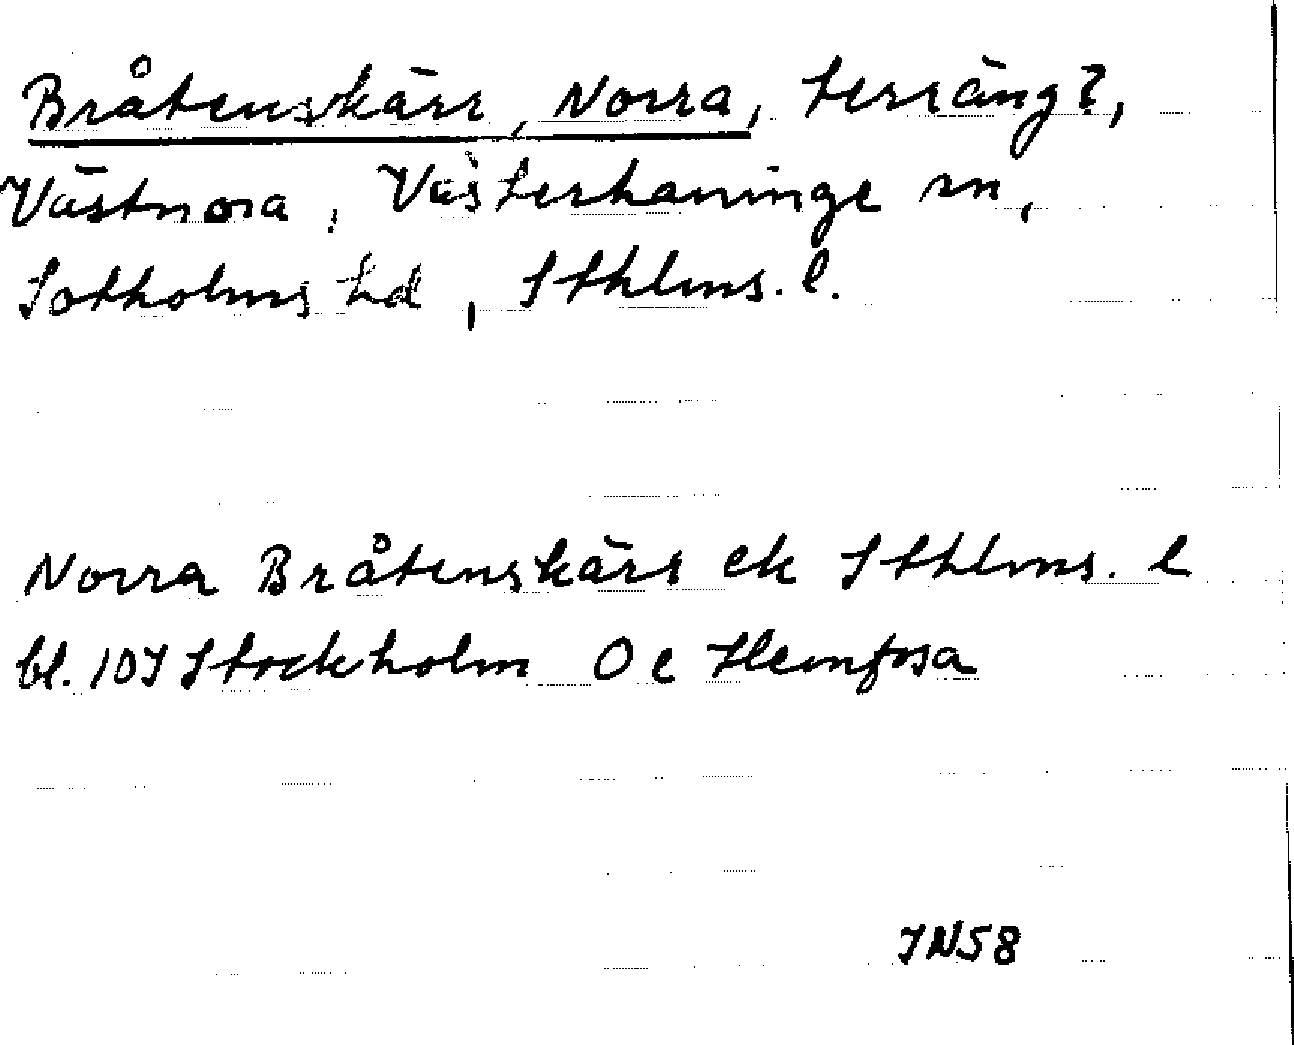 Bråtenskärr, Norra, terräng?,
Västnora, Västerhaninge sn,
Sotholms hd, Sthlms. l.
Norra Bråtenskärr ek Sthlms. l
bl. 10I Stockholm O e Hemfosa
IN58